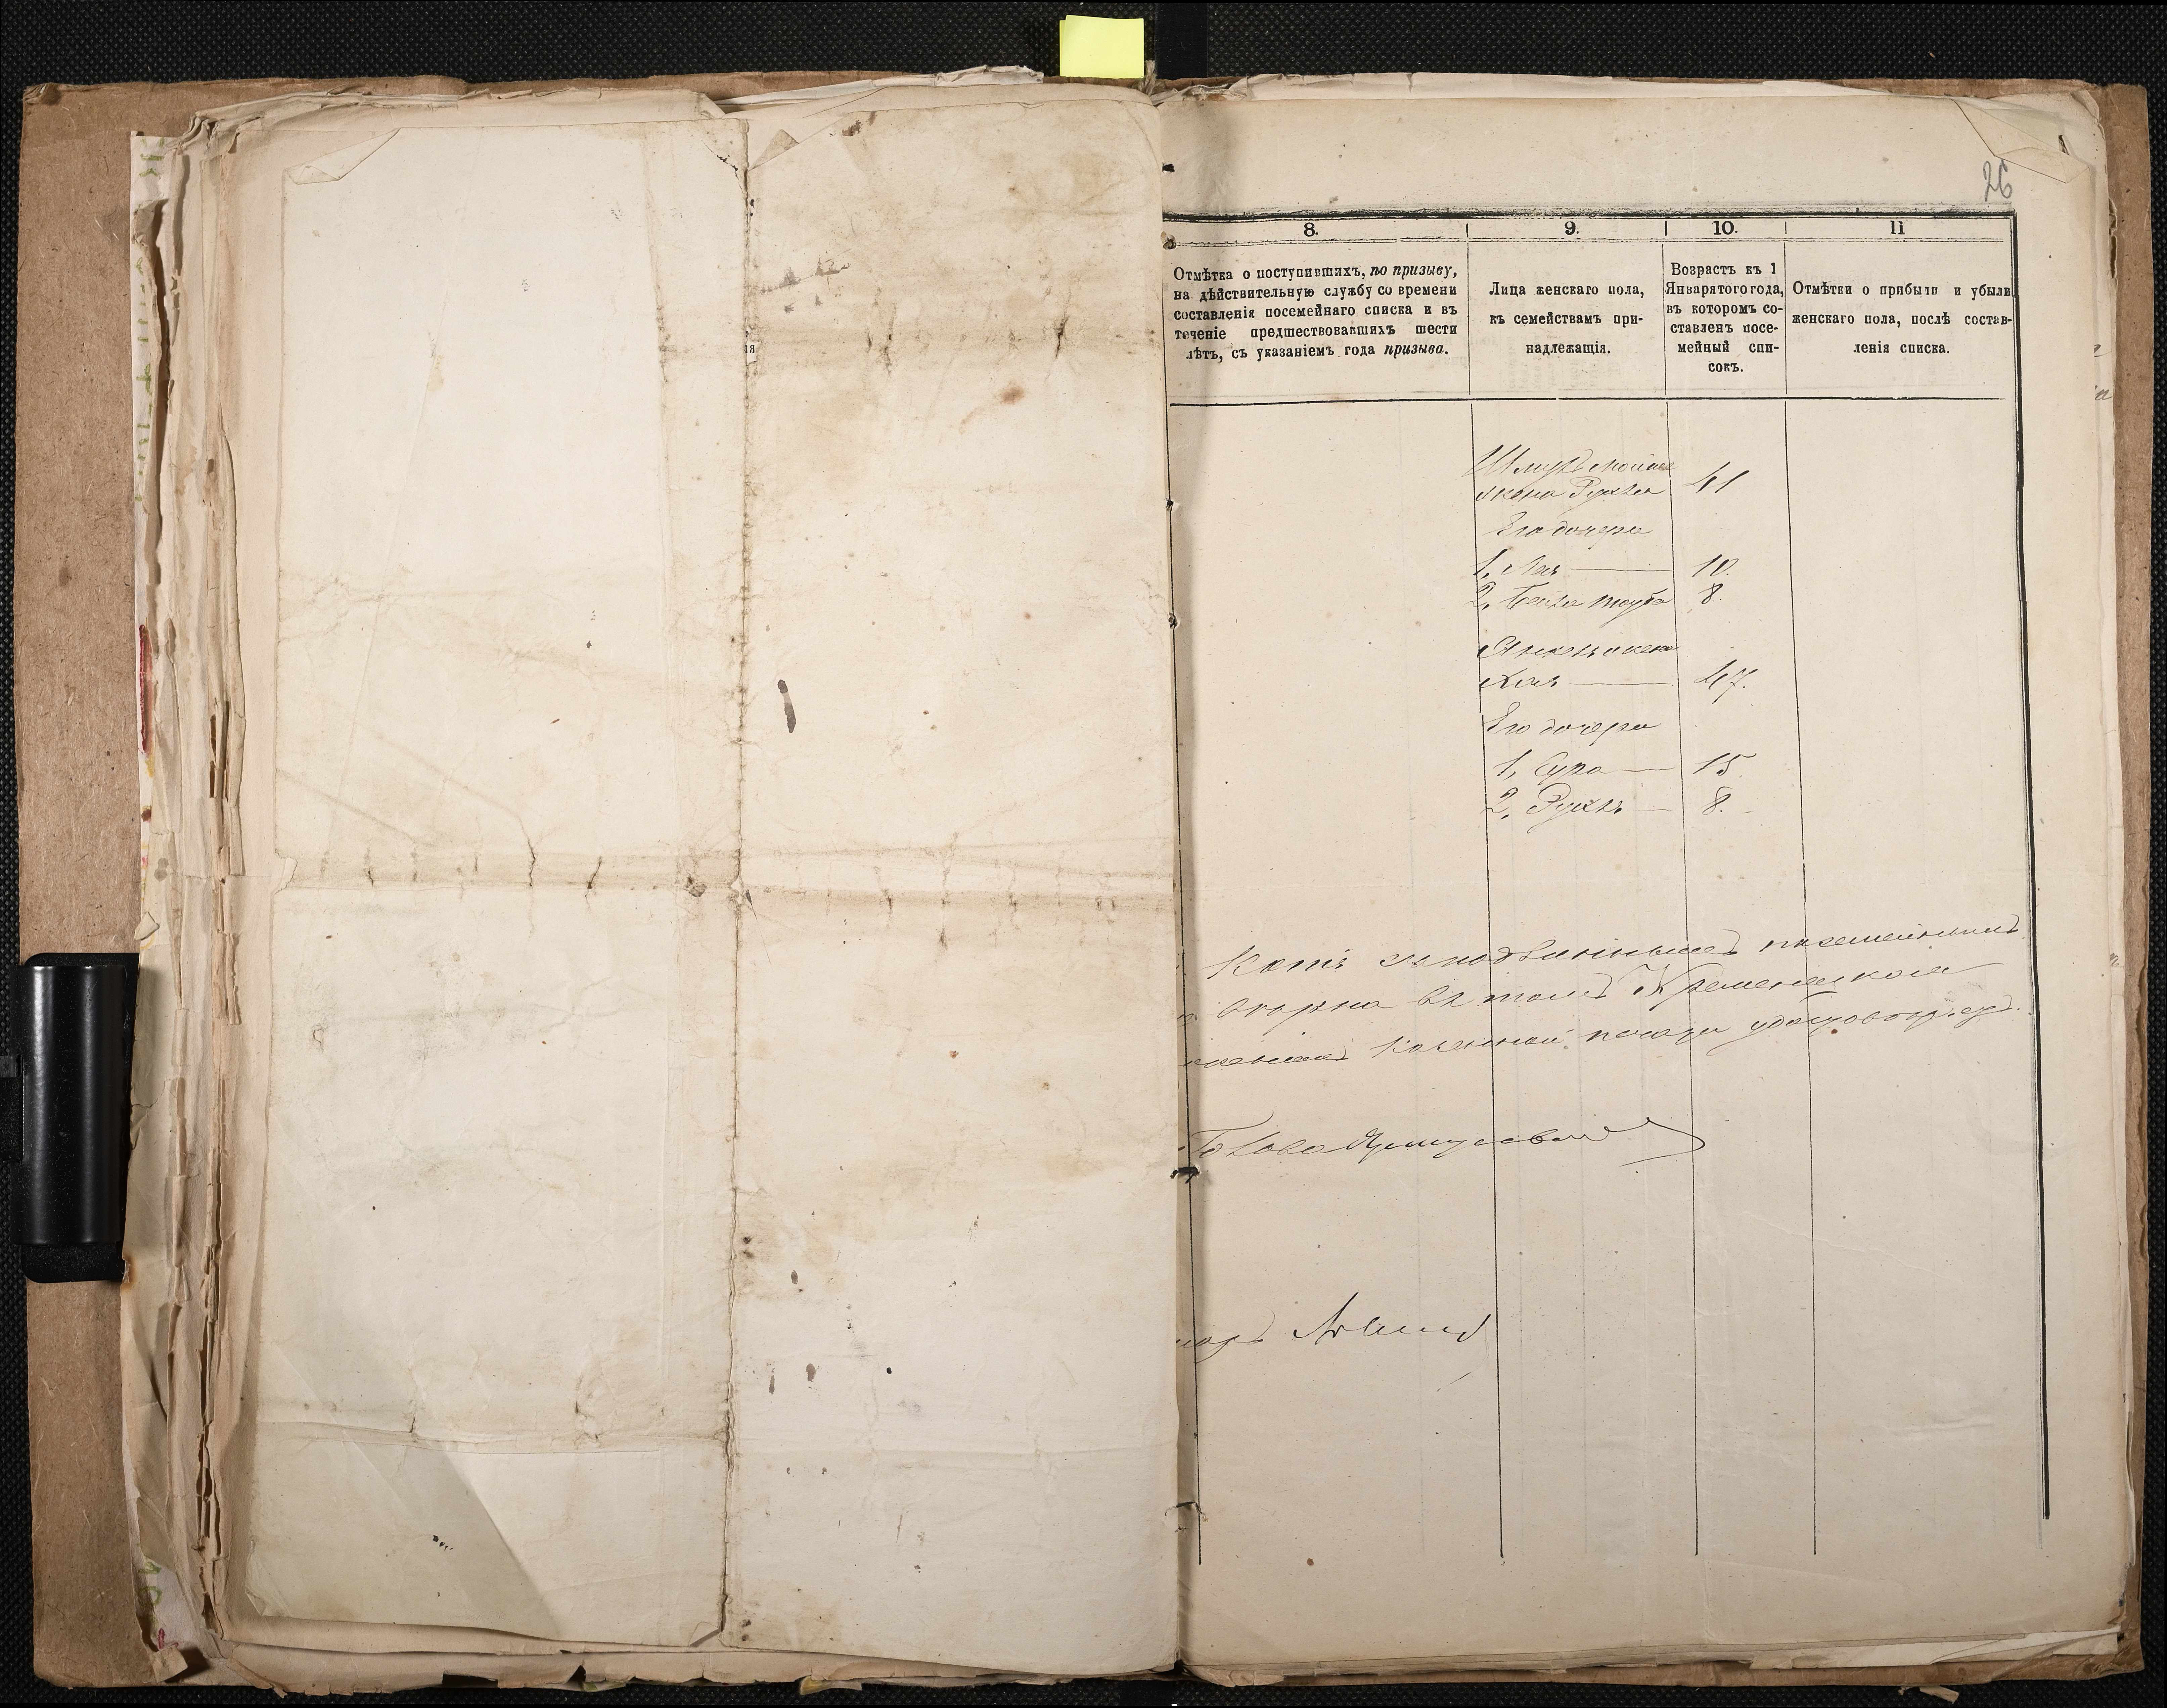 26
8.
9.
10.
11
Отмѣтка о поступившихъ, по призыву,
на дѣйствительную службу со времени
составленія посемейнаго списка и въ
теченіе предшествовавшихъ шести
лѣтъ, съ указаніемъ года призыва.
Лица женскаго пола,
къ семействамъ при-
надлежащія.
Возрастъ къ 1
Января того года,
въ которомъ со-
ставленъ посе-
мейный спи-
сокъ.
Отмѣтки о прибыли и убыли
женскаго пола, послѣ состав-
ленія списка.
жена Рухля 41
Его дочери
1, Лея 10.
2, Бейла Тауба 8.
Хая 47.
Его дочери
1, Сура 15
2, Рухль 8.
Копія съ подлиннымъ посемейнымъ
въ томъ Кременецкая
казенной печати удостовѣряетъ.
Голова